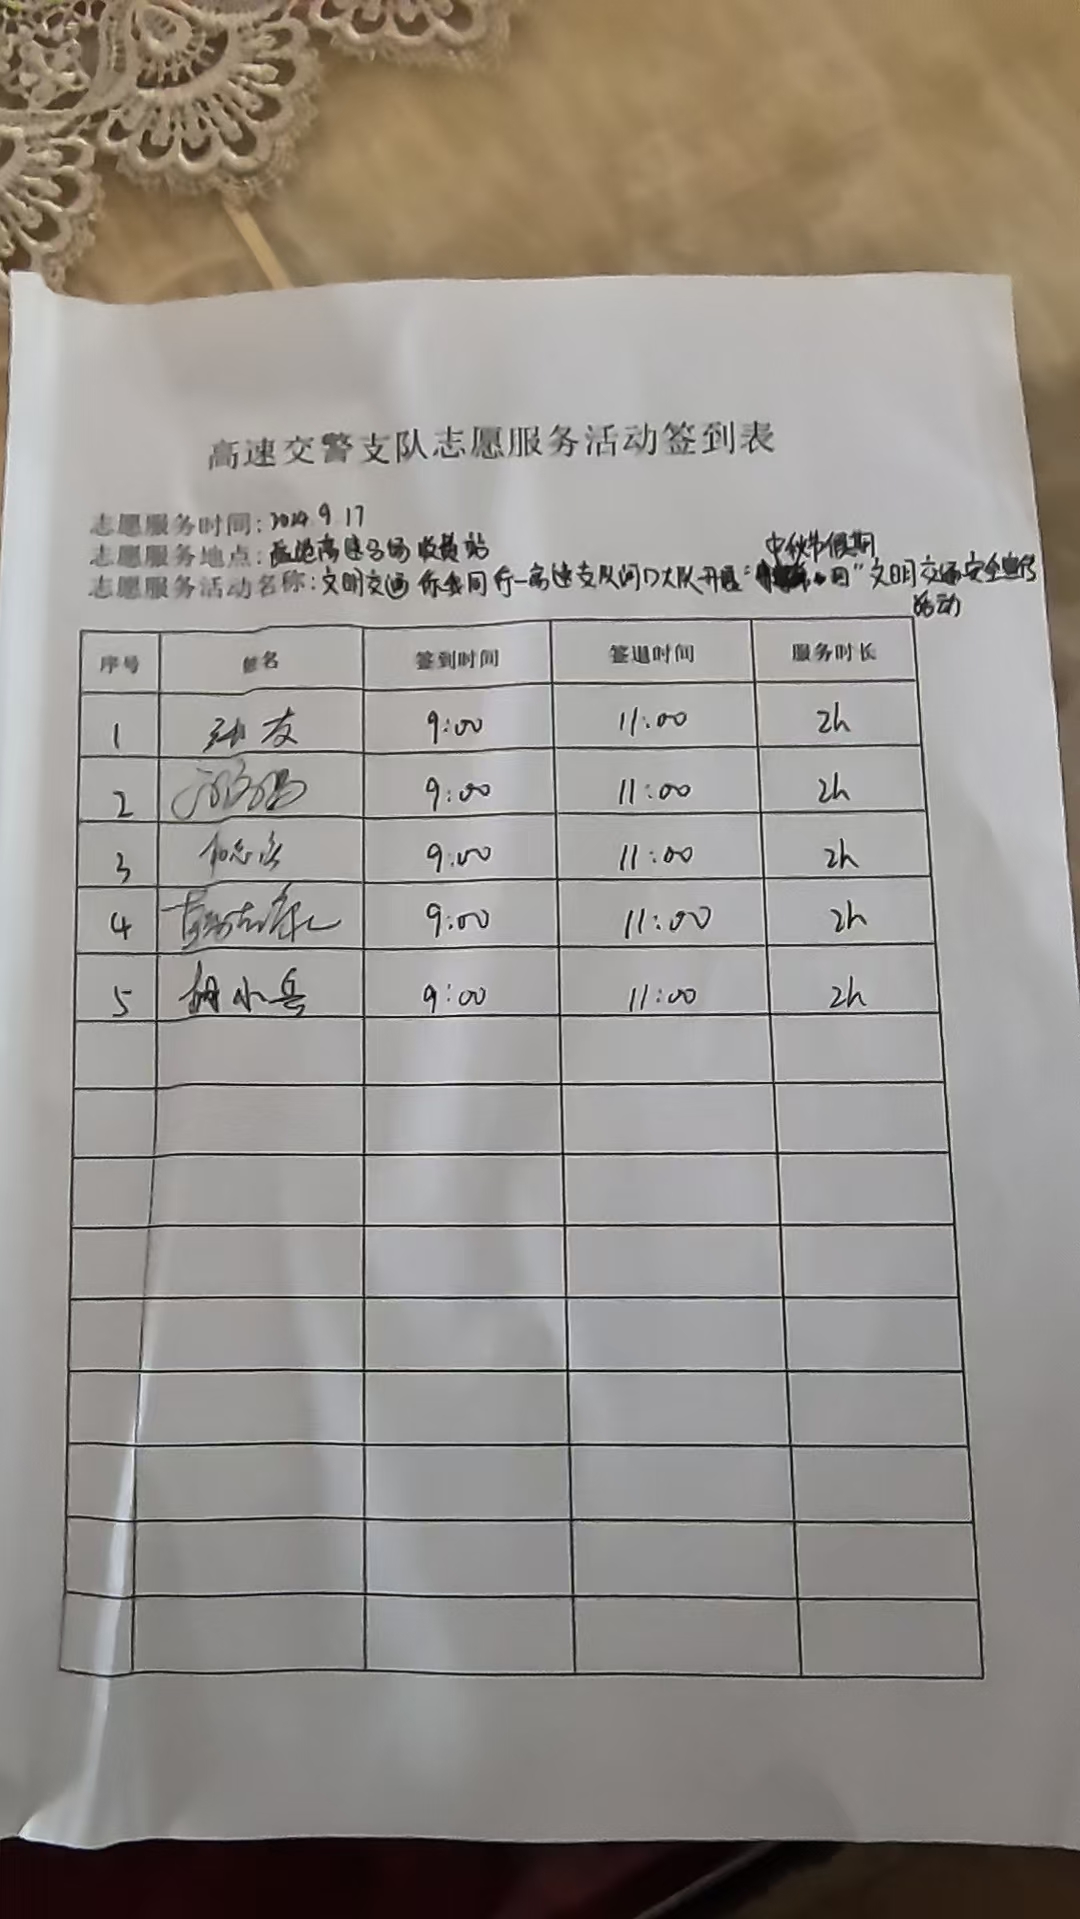 高速交警支队志愿服务活动签到表
志愿服务时间:2024.9.17
志愿服务地点:高速马场收费站
中秋节假期
志愿服务活动名称:文明交通 你我同行—高速支队闵大队开展“ ”文明交通安全宣传
活动
序号 签名 签到时间 签退时间 服务时长
1 友 9:00 11:00 2h
2 9:00 11:00 2h
3 9:00 11:00 2h
4 9:00 11:00 2h
5 胡小兵 9:00 11:00 2h